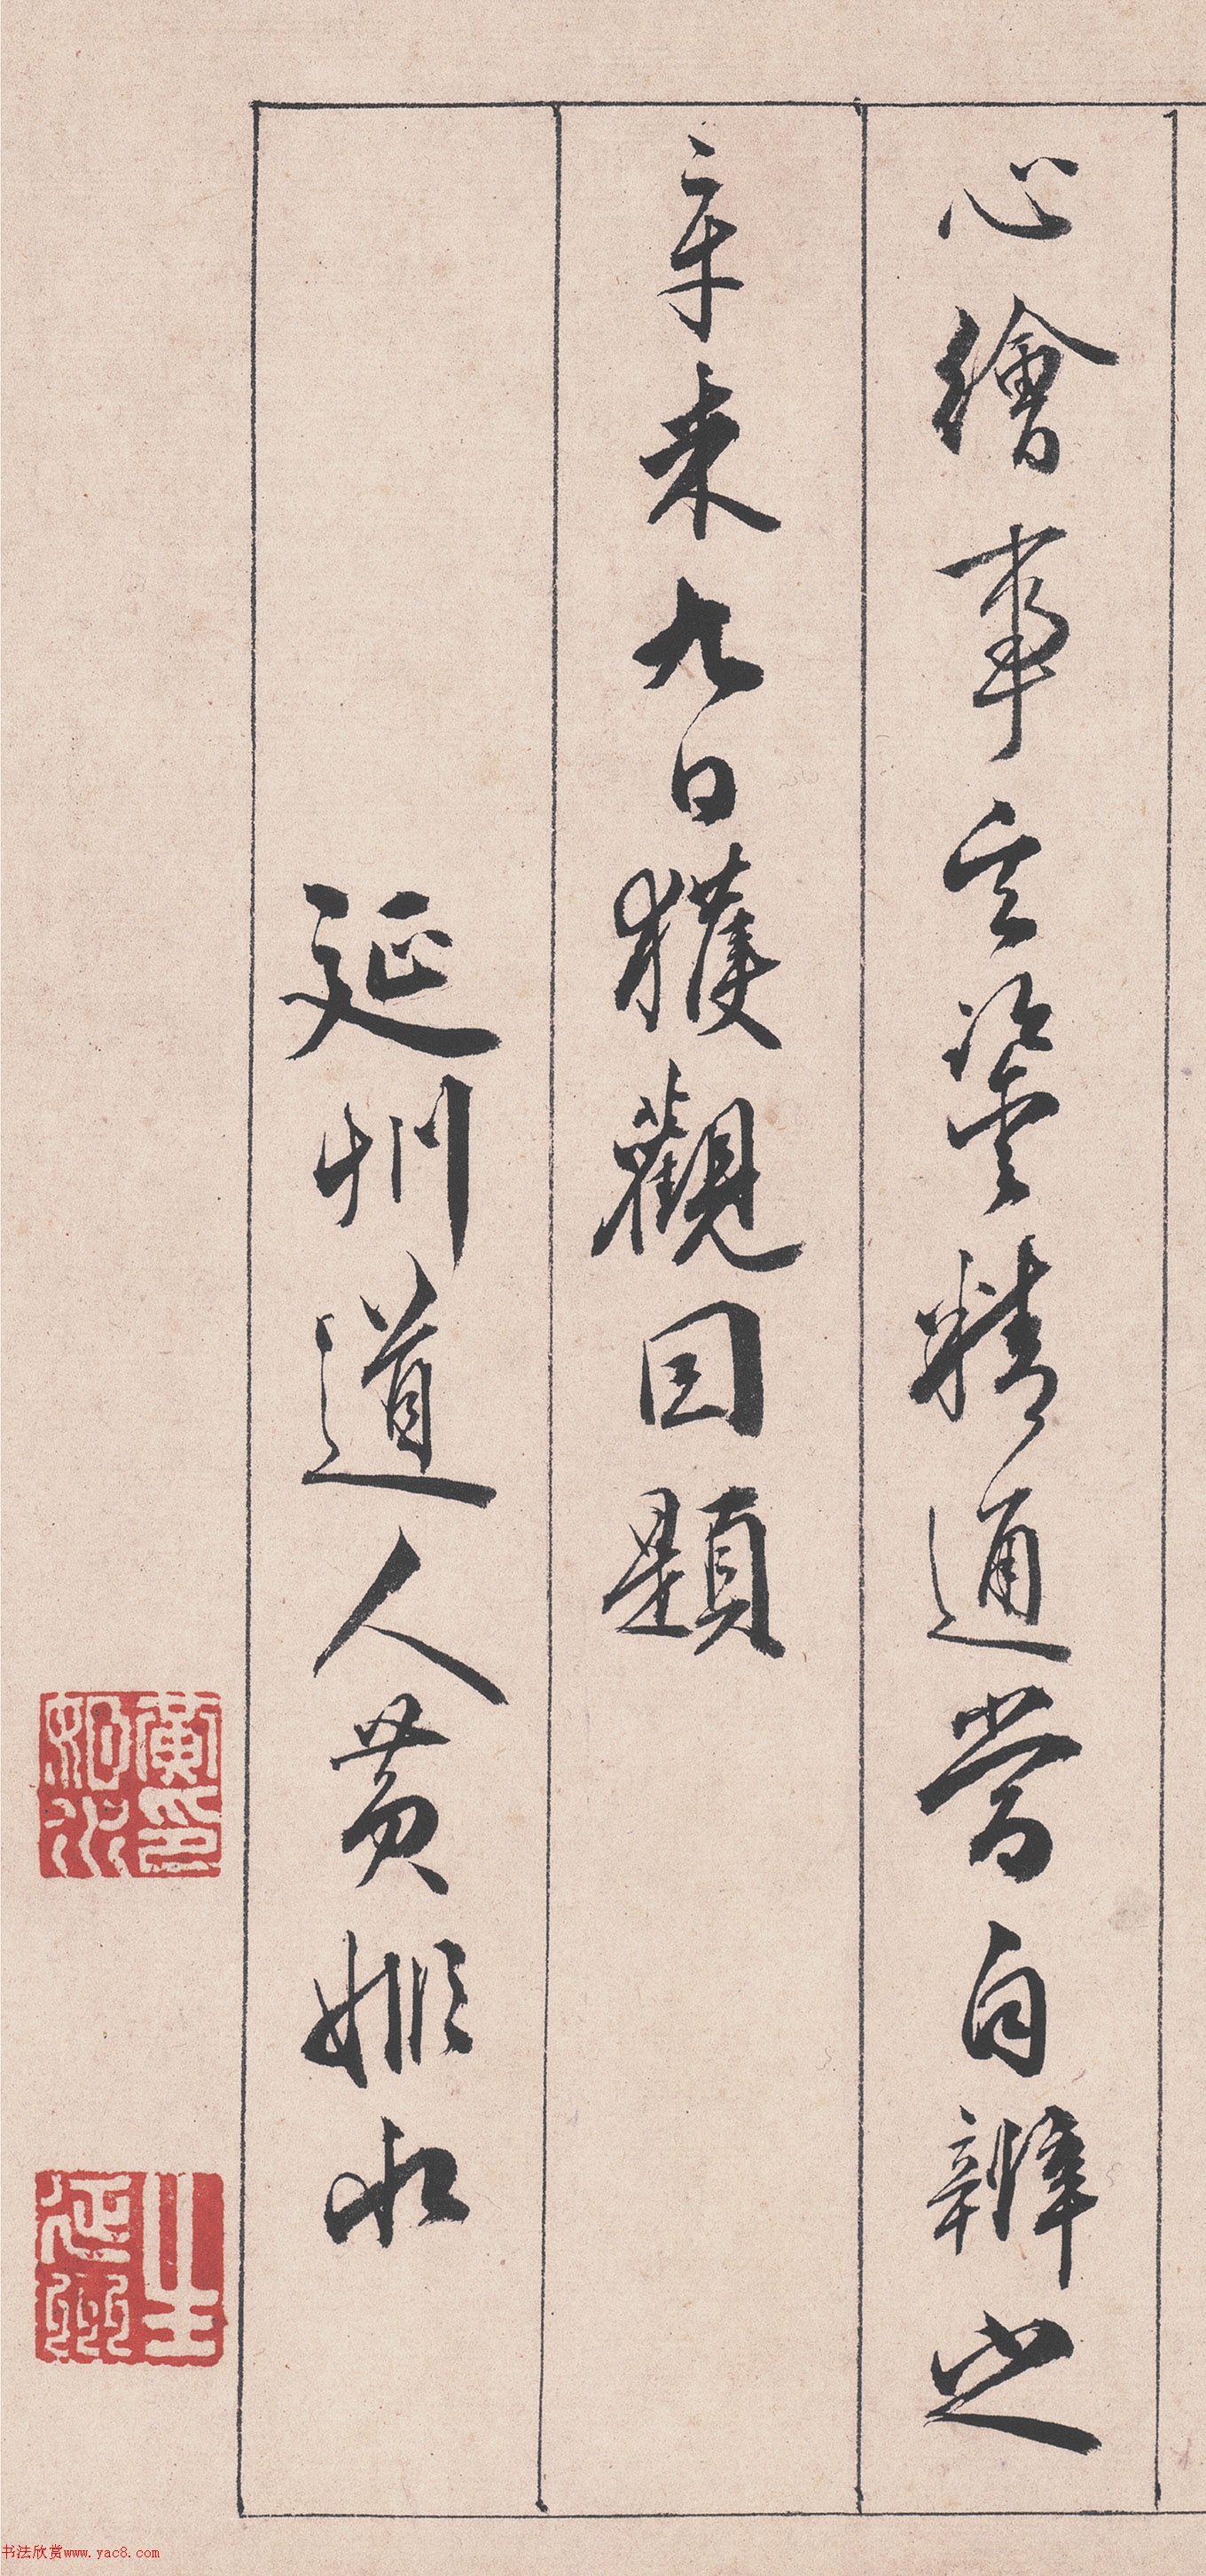 心繪事其鑒精通當自辨之
辛未九日獲觀因題
延州道人黃姬水
黃印姬水
书法欣赏www.yac8.com